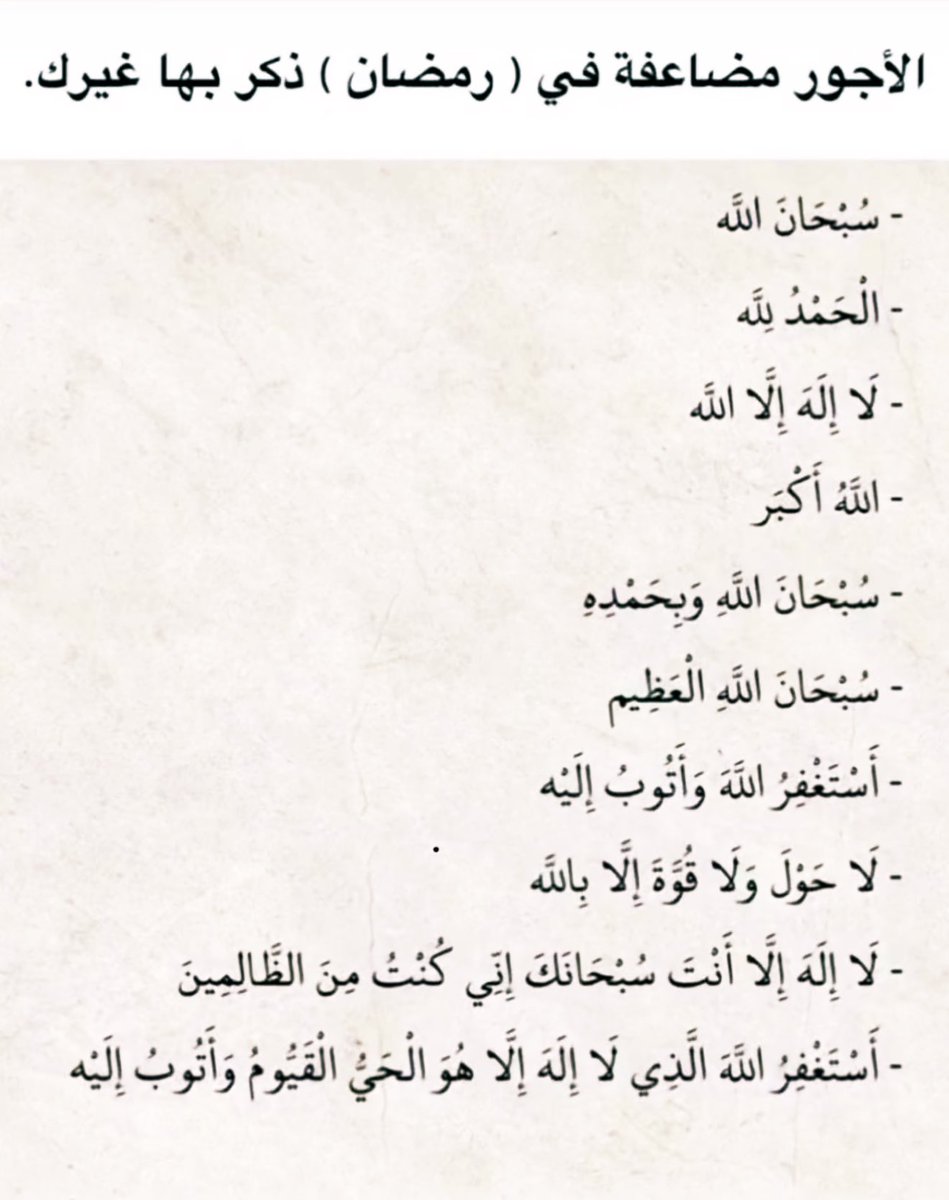 الأجور مضاعفة في ( رمضان ) ذكر بها غيرك.
- سُبْحَانَ اللَّه
- الْحَمْدُ لِلَّه
- لَا إِلَهَ إِلَّا اللَّه
- اللَّهُ أَكْبَر
- سُبْحَانَ اللَّهِ وَبِحَمْدِهِ
- سُبْحَانَ اللَّهِ الْعَظِيم
- أَسْتَغْفِرُ اللَّهَ وَأَتُوبُ إِلَيْه
- لَا حَوْلَ وَلَا قُوَّةَ إِلَّا بِاللَّه
- لَا إِلَهَ إِلَّا أَنْتَ سُبْحَانَكَ إِنِّي كُنْتُ مِنَ الظَّالِمِينَ
- أَسْتَغْفِرُ اللَّهَ الَّذِي لَا إِلَهَ إِلَّا هُوَ الْحَيُّ الْقَيُّومُ وَأَتُوبُ إِلَيْه